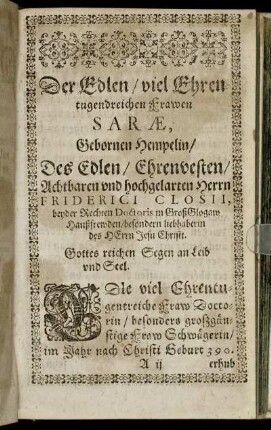 Der Edlen / viel Ehren
tugendreichen Frawen
SARÆ,
Gebornen Hempelin /
Des Edlen / Ehrenvesten /
Achtbaren vnd hochgelarten Herrn
FRIDERICI CLOSII,
beyder Rechten Doctoris in GroßGlogaw
Haußfrewden / besondern liebhaberin
des HErrn Jesu Christi.
Gottes reichen Segen an Leib
vnd Seel.
Die viel Ehrentu-
gentreiche Fraw Docto-
rin / besonders großgün-
stige Fraw Schwägerin /
im Jahr nach Christi Geburt 390.
A ij
erhub